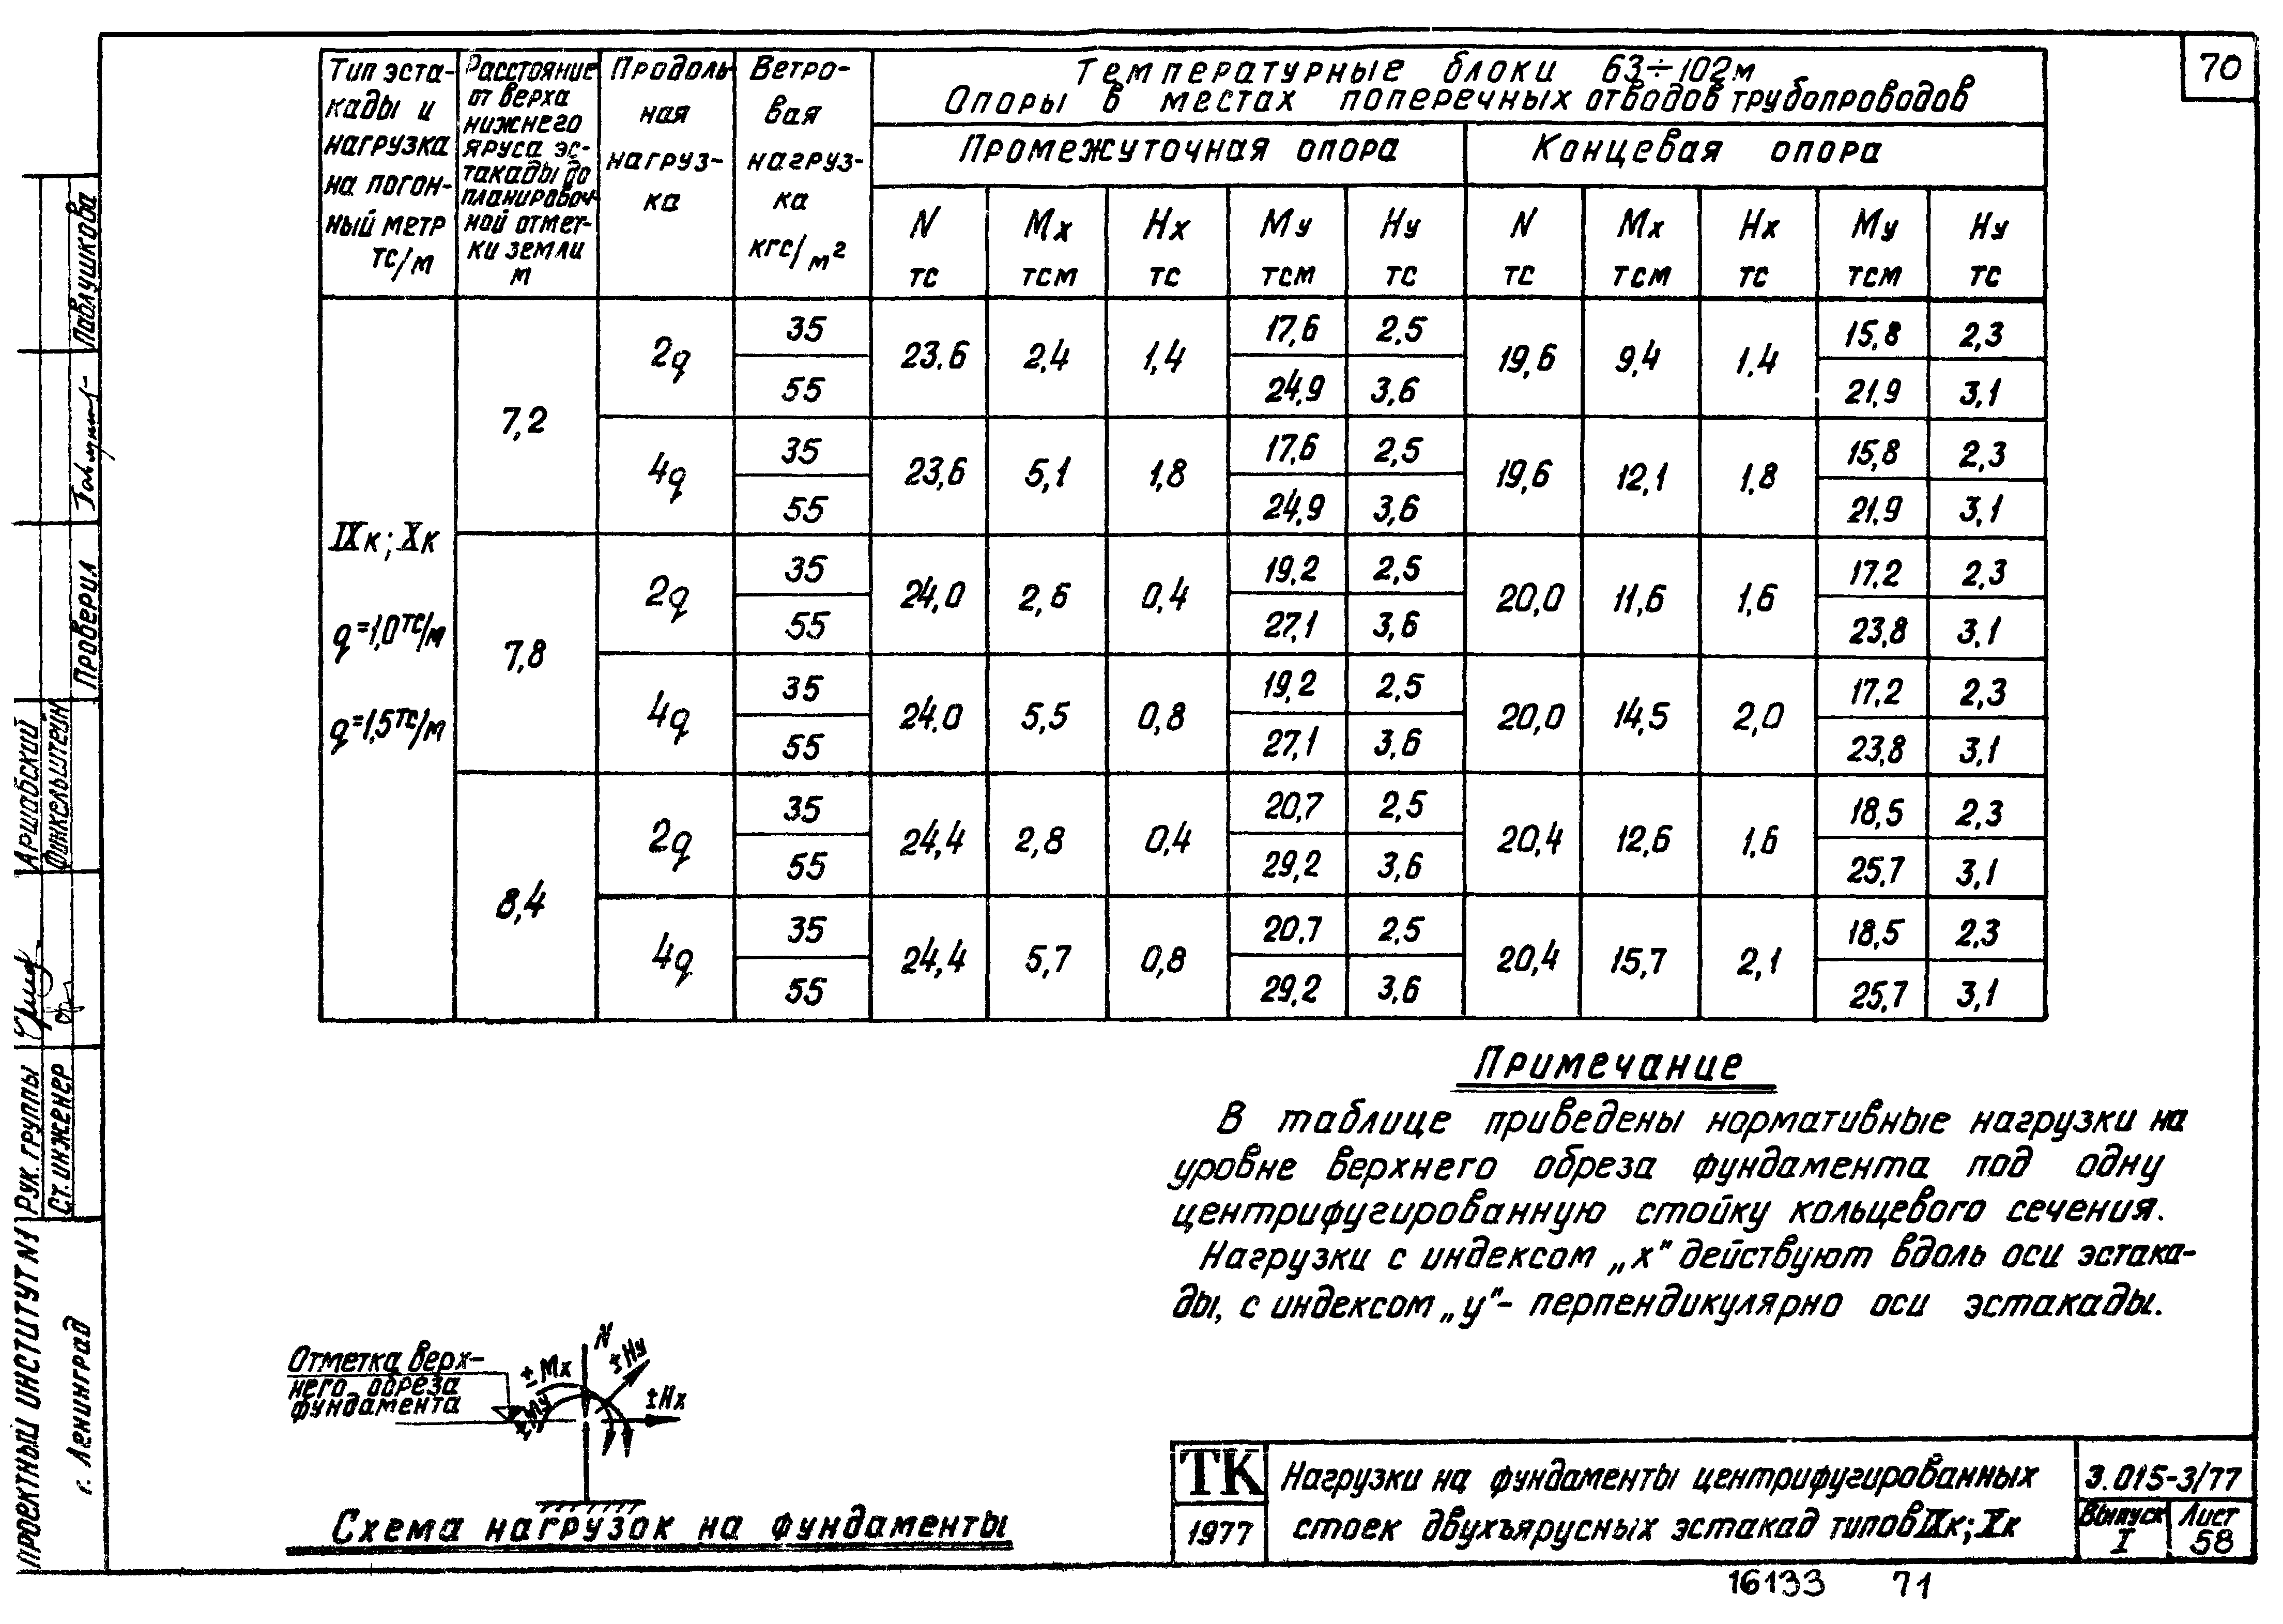 70
Тип эста-
кады и
нагрузка
на погон-
ный метр
тс/м
Расстояние
от верха
нижнего
яруса эс-
такады до
планировоч-
ной отмет-
ки земли
м
Продоль-
ная
нагруз-
ка
Ветро-
вая
нагруз-
ка
кгс/м²
Температурные блоки 63÷102м
Опоры в местах поперечных отводов трубопроводов
Промежуточная опора Концевая опора
N Mx Hx My Hy N Mx Hx My Hy
тс тсм тс тсм тс тс тсм тс тсм тс
IXк; Xк
q=1,0тс/м
q=1,5тс/м
7,2 2q 35 23.6 2,4 1,4 17,6 2,5 19,6 9,4 1,4 15,8 2,3
55 24,9 3,6 21,9 3,1
4q 35 23,6 5,1 1,8 17,6 2,5 19,6 12,1 1,8 15,8 2,3
55 24,9 3,6 21,9 3,1
7,8 2q 35 24,0 2,6 0,4 19,2 2,5 20,0 11,6 1,6 17,2 2,3
55 27,1 3,6 23,8 3,1
4q 35 24.0 5,5 0,8 19,2 2,5 20,0 14,5 2,0 17,2 2,3
55 27,1 3,6 23,8 3,1
8,4 2q 35 24,4 2,8 0,4 20,7 2,5 20,4 12,6 1,6 18,5 2,3
55 29,2 3,6 25,7 3,1
4q 35 24,4 5,7 0,8 20,7 2,5 20,4 15,7 2,1 18,5 2,3
55 29,2 3,6 25,7 3,1
Примечание
В таблице приведены нормативные нагрузки на
уровне верхнего обреза фундамента под одну
центрифугированную стойку кольцевого сечения.
Нагрузки с индексом „x" действуют вдоль оси эстака-
ды, с индексом „y"- перпендикулярно оси эстакады.
Отметка верх-
него обреза
фундамента
N
±Mx
±My
±Hy
±Hx
Схема нагрузок на фундаменты
ТК
1977
Нагрузки на фундаменты центрифугированных
стоек двухъярусных эстакад типов IXк; Xк
3.015-3/77
Выпуск
I
Лист
58
16133 71
Проектный институт N1
г. Ленинград
Рук. группы
Ст. инженер
Аршавский
Финкельштейн
Проверил
Павлушкова